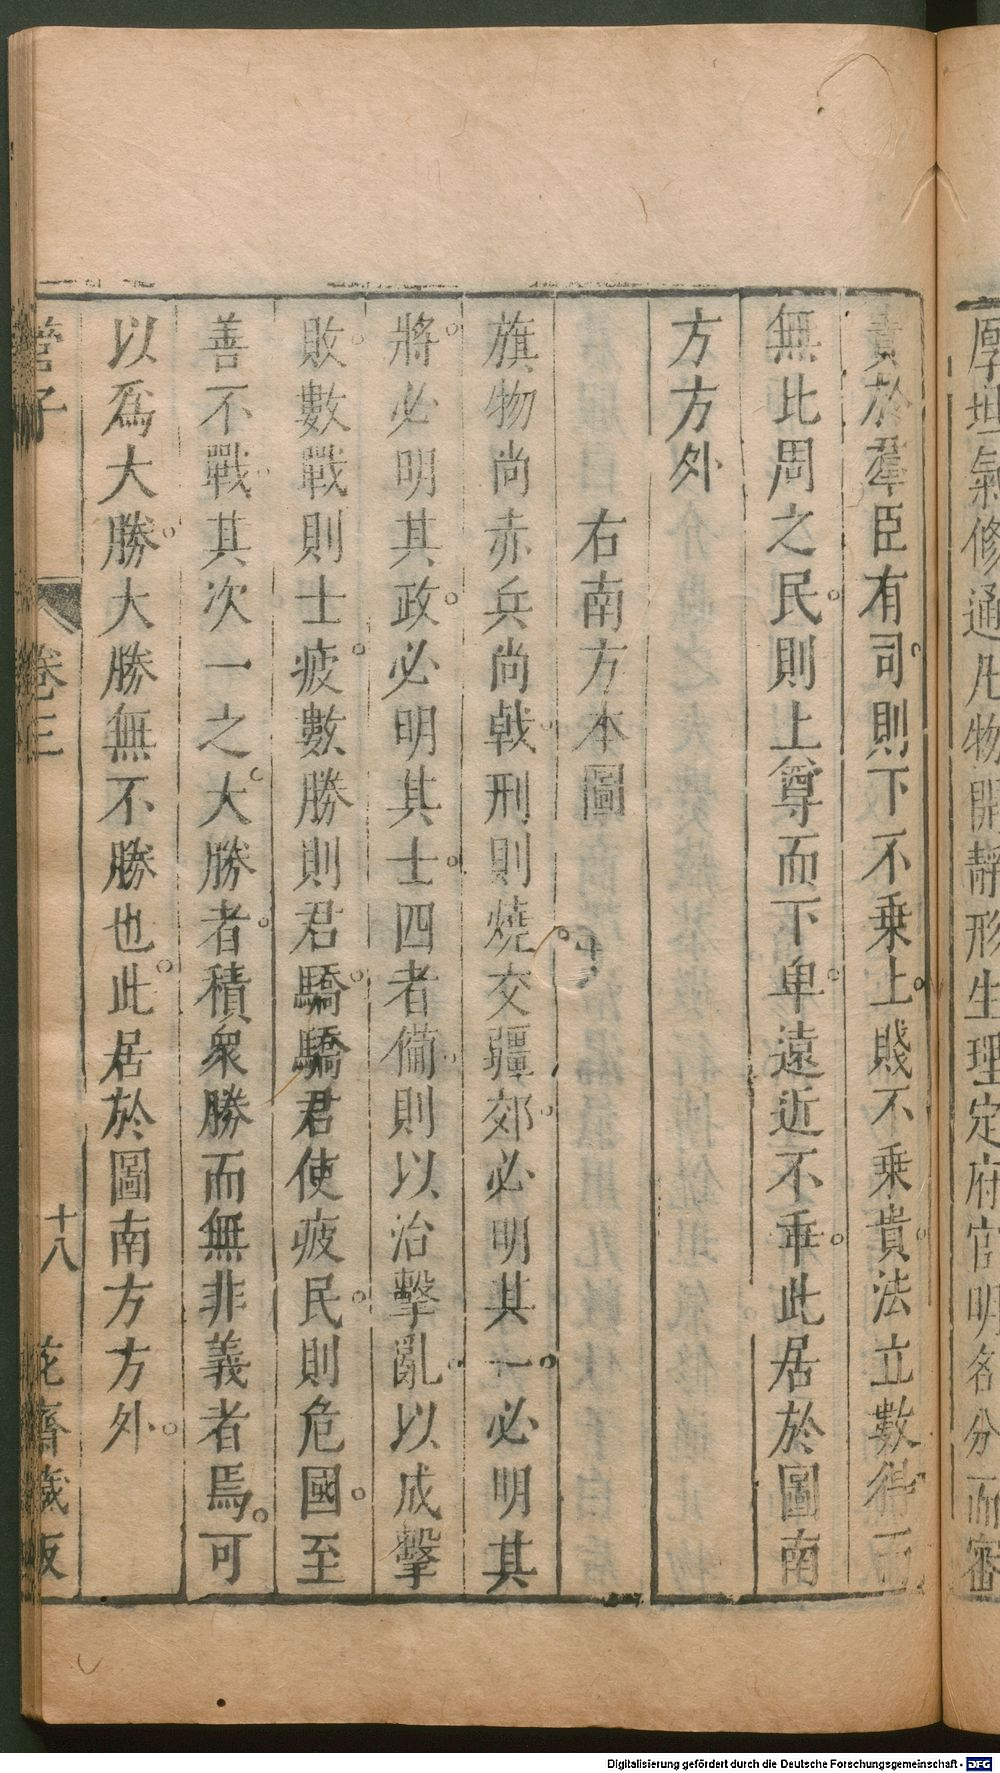 厚坦氣修通凡物開靜形生理定府官明名分而審
責於羣臣有司則下不乗上賤不乗貴法立數得而
無此周之民則上尊而下卑遠近不乖此居於圖南
方方外
右南方本圖
旗物尚赤兵尚戟刑則燒交疆郊必明其一必明其
將必明其政必明其士四者備則以治擊亂以成擊
敗數戰則士疲數勝則君驕驕君使疲民則危國至
善不戰其次一之大勝者積衆勝而無非義者焉可
以爲大勝大勝無不勝也此居於圖南方方外
管子 卷三 十八 花齋藏板
Digitalisierung gefördert durch die Deutsche Forschungsgemeinschaft - DFG